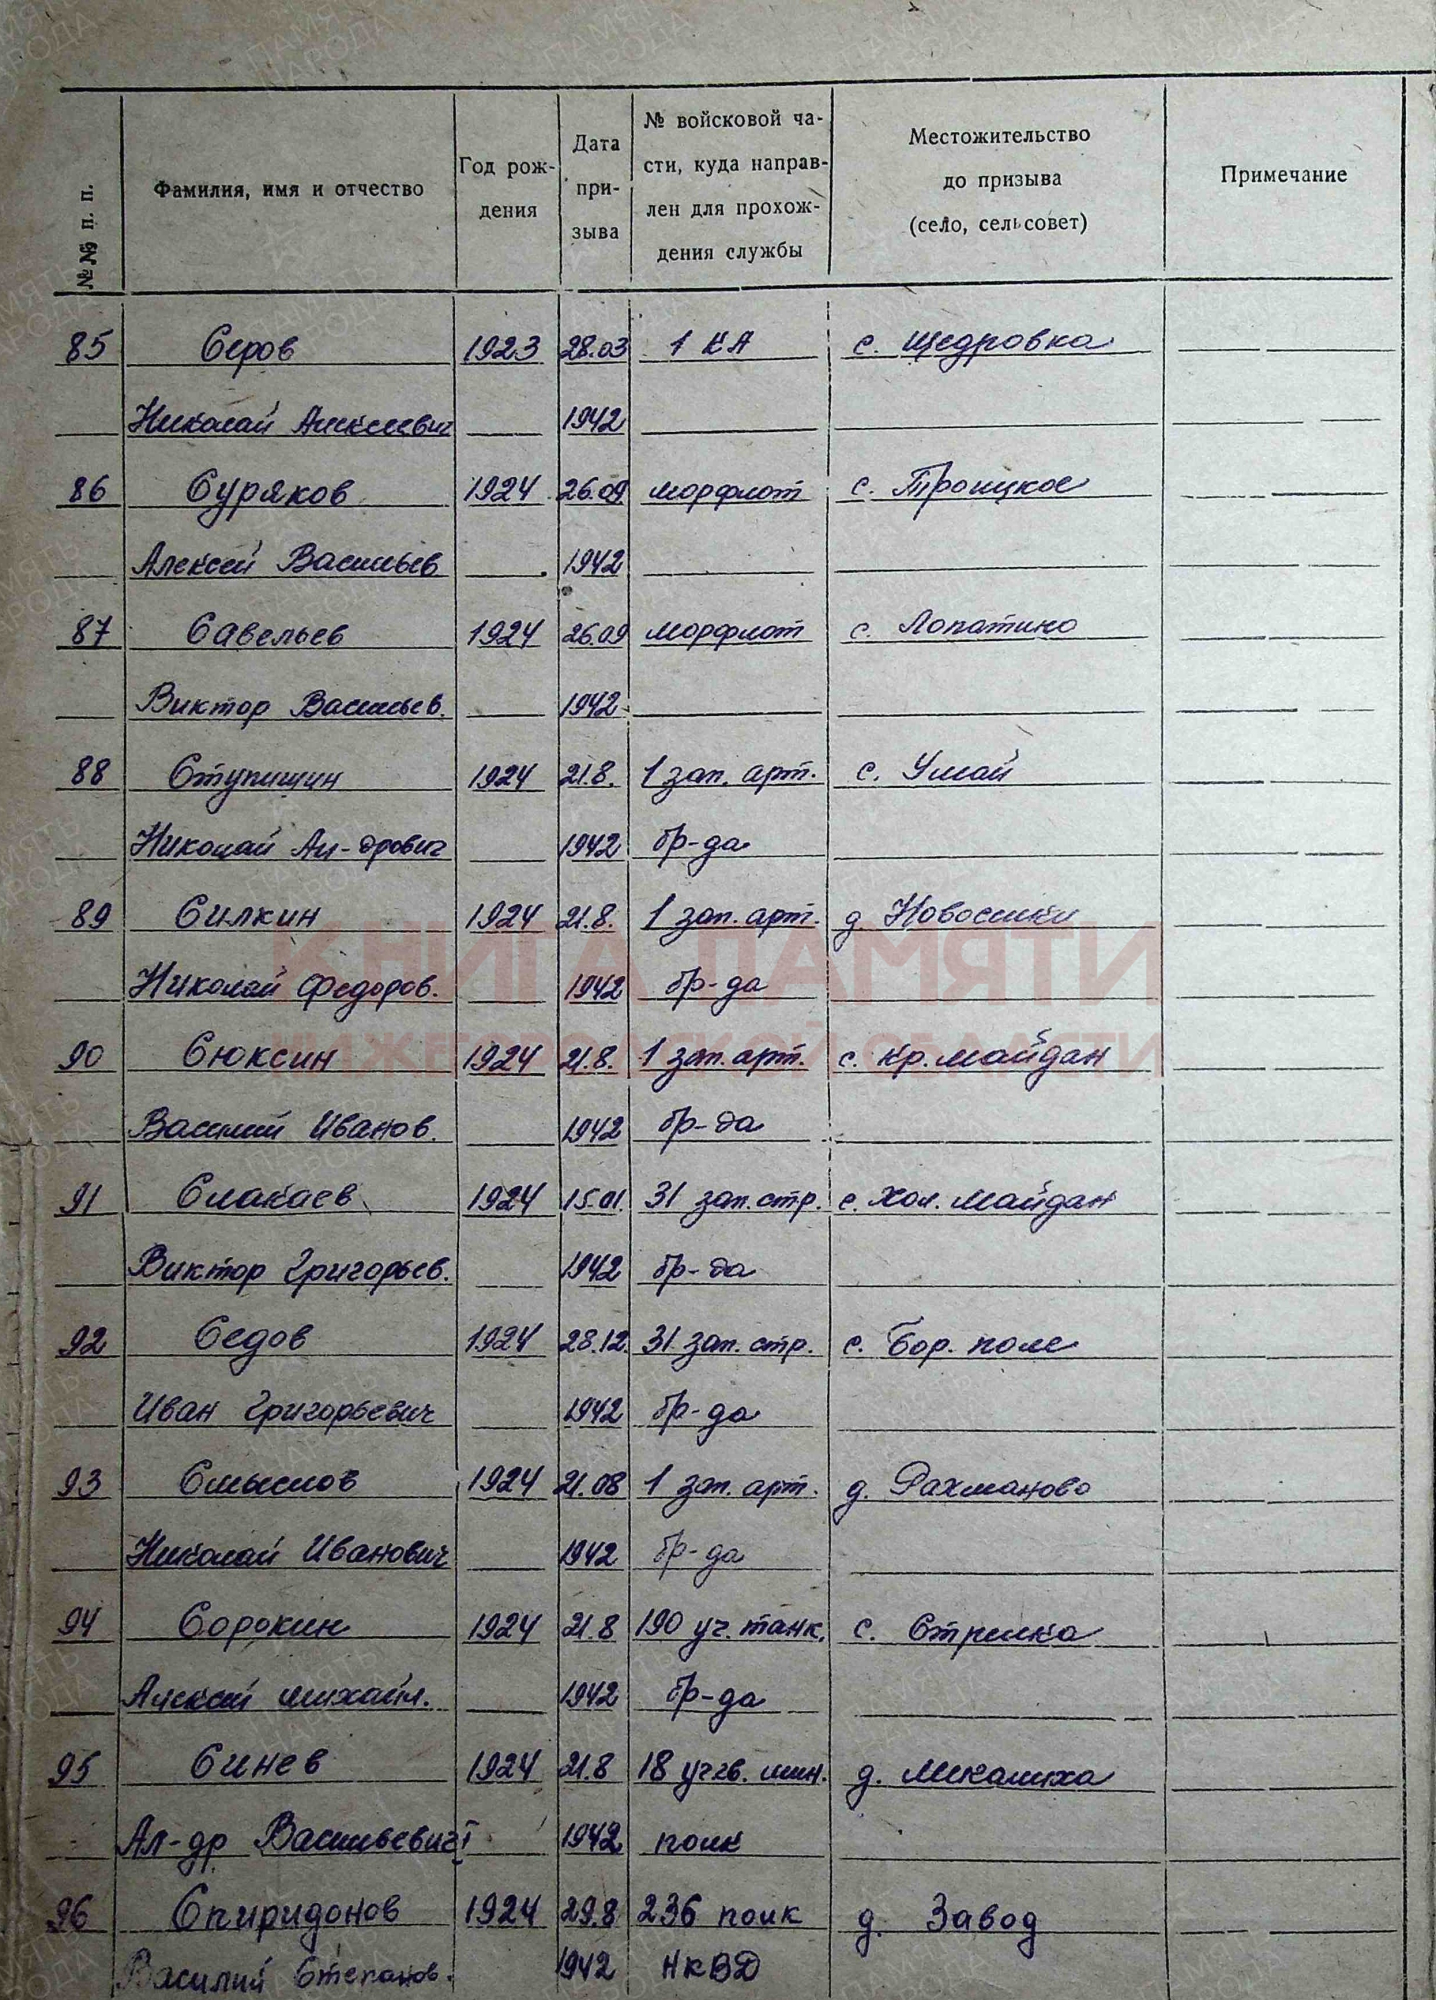 №№ п. п. Фамилия, имя и отчество Год рож- дения Дата при- зыва № войсковой ча- сти, куда направ- лен для прохож- дения службы Местожительство до призыва (село, сельсовет) Примечание
85 Серов 1923 28.03 1 КА с. Щедровка
Николай Алексеевич 1942
86 Суряков 1924 26.09 морфлот с. Троицкое
Алексей Васильев 1942
87 Савельев 1924 26.09 морфлот с. Лопатино
Виктор Васильев. 1942
88 Ступишин 1924 21.8. 1 зап. арт. с. Умай
Николай Ал-дрович 1942 бр-да
89 Силкин 1924 21.8. 1 зап. арт. д. Новоселки
Николай Федоров. 1942 бр-да
КНИГА ПАМЯТИ
НИЖЕГОРОДСКОЙ ОБЛАСТИ
90 Сюксин 1924 21.8. 1 зап. арт. с. Кр. Майдан
Василий Иванов. 1942 бр-да
91 Слакаев 1924 15.01. 31 зап. стр. с. Хол. Майдан
Виктор Григорьев. 1942 бр-да
92 Седов 1924 28.12. 31 зап. стр. с. Бор. поле
Иван Григорьевич 1942 бр-да
93 Смыслов 1924 21.08 1 зап. арт. д. Рахманово
Николай Иванович 1942 бр-да
94 Сорокин 1924 21.8 190 уч. танк. с. Стрелка
Алексей Михайл. 1942 бр-да
95 Синев 1924 21.8 18 уч гв. мин. д. Мекалиха
Ал-др Васильевич 1942 полк
96 Спиридонов 1924 29.8 236 полк д. Завод
Василий Степанов. 1942 НКВД